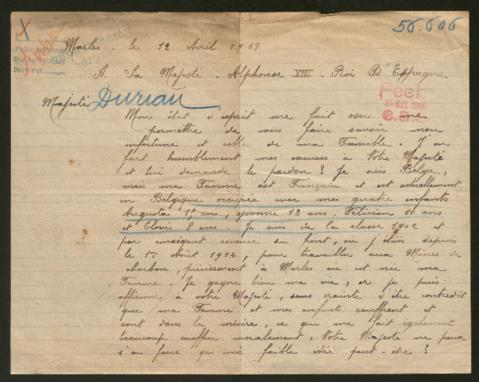 X
56.606
Marles, le 12 Avril 1918
A Sa Majesté Alphonse XIII. Roi D'Espagne
Majesté DURIAU
Feet
25 MAI 1918
Mon état d'esprit me fait oser me
permettre de vous faire savoir mon
infortune et celle de ma Famille. J'en
fait humblement mes excuses à Votre Majesté
et lui demande le pardon? Je suis Belge,
mais ma Femme est Française et est actuellement
en Belgique occupée avec mes quatre enfants
Augusta ans, Yvonne 12 ans, Félicien 10 ans
et Clovis 8 ans. Je suis de la classe 1902 et
par conséquent revenu du front, où j'étais depuis
le 1er Août 1914, pour travailler aux Mines de
charbon, précisément à Marles où est née ma
Femme. Je gagne bien ma vie; or je puis
affirmer à votre Majesté, sans crainte d'être contredit
que ma Femme et mes enfants souffrent et
sont dans la misère, ce qui me fait également
beaucoup souffrir moralement, Votre Majesté ne peut
s'en faire qu'une faible idée peut-être?